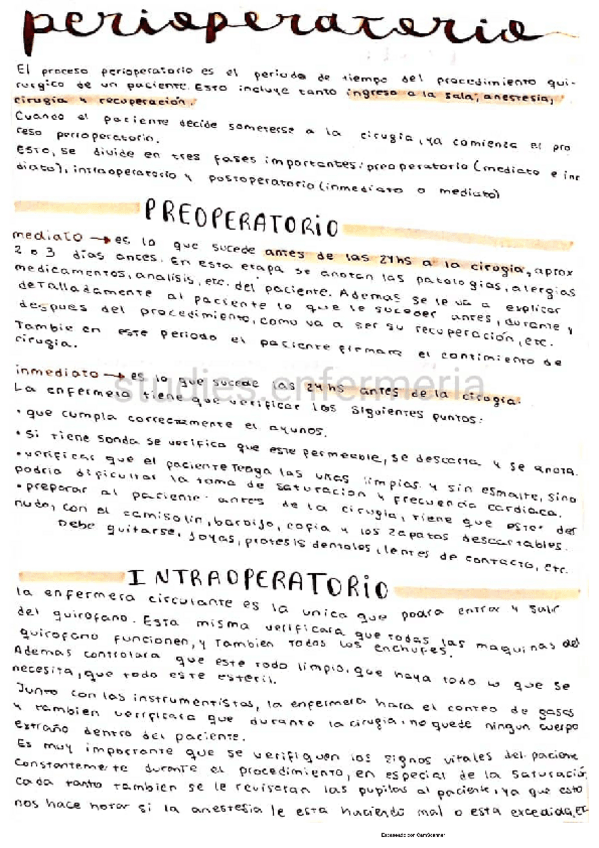 perioperatorio
El proceso perioperatorio es el periodo de tiempo del procedimiento qui-
rurgico de un paciente. Esto incluye tanto ingreso a la sala, anestesia,
cirugia y recuperación.
Cuando el paciente decide someterse a la cirugia, ya comienza el pro
ceso perioperatorio.
Este, se divide en tres fases importantes: preoperatorio (mediato e inm
diato), intraoperatorio y postoperatorio (inmediato o mediato)
PREOPERATORIO
mediato → es lo que sucede antes de las 24hs a la cirugia, aprox
2 o 3 dias antes. En esta etapa se anotan las patologias, alergias
medicamentos, analisis, etc. del paciente. Ademas se le va a explicar
detalladamente al paciente lo que le suceder antes, durante y
despues del procedimiento, como va a ser su recuperación, etc.
Tambien en este periodo el paciente firmara el contimiento de
cirugia.
inmediato → es lo que sucede las 24hs antes de la cirugia.
studies.enfermeria
La enfermera tiene que verificar los siguientes puntos:
• que cumpla correctamente el ayunos.
• si tiene sonda se verifica que este permeable, se descarta y se anota.
• verificar que el paciente tenga las uñas limpias y sin esmalte, sino
podria dificultar la toma de saturacion y frecuencia cardiaca.
• preparar al paciente antes de la cirugia, tiene que estar des
nudo, con el camisolin, barbijo, cofia y los zapatos descartables.
Debe quitarse, joyas, protesis dentales, lentes de contacto, etc.
INTRAOPERATORIO
la enfermera circulante es la unica que podra entrar y salir
del quirofano. Esta misma verificara que todas las maquinas del
quirofano funcionen, y tambien todos los enchufes.
Ademas controlara que este todo limpio, que haya todo lo que se
necesita, que todo este esteril.
Junto con las instrumentistas, la enfermera hara el conteo de gasas
y tambien verificara que durante la cirugia, no quede ningun cuerpo
extraño dentro del paciente.
Es muy importante que se verifiquen los signos vitales del paciente
constantemente durante el procedimiento, en especial de la saturació
cada tanto tambien se le revisaran las pupilas al paciente, ya que esto
nos hace notar si la anestesia le esta haciendo mal o esta excedida, etc
Escaneado con CamScanner